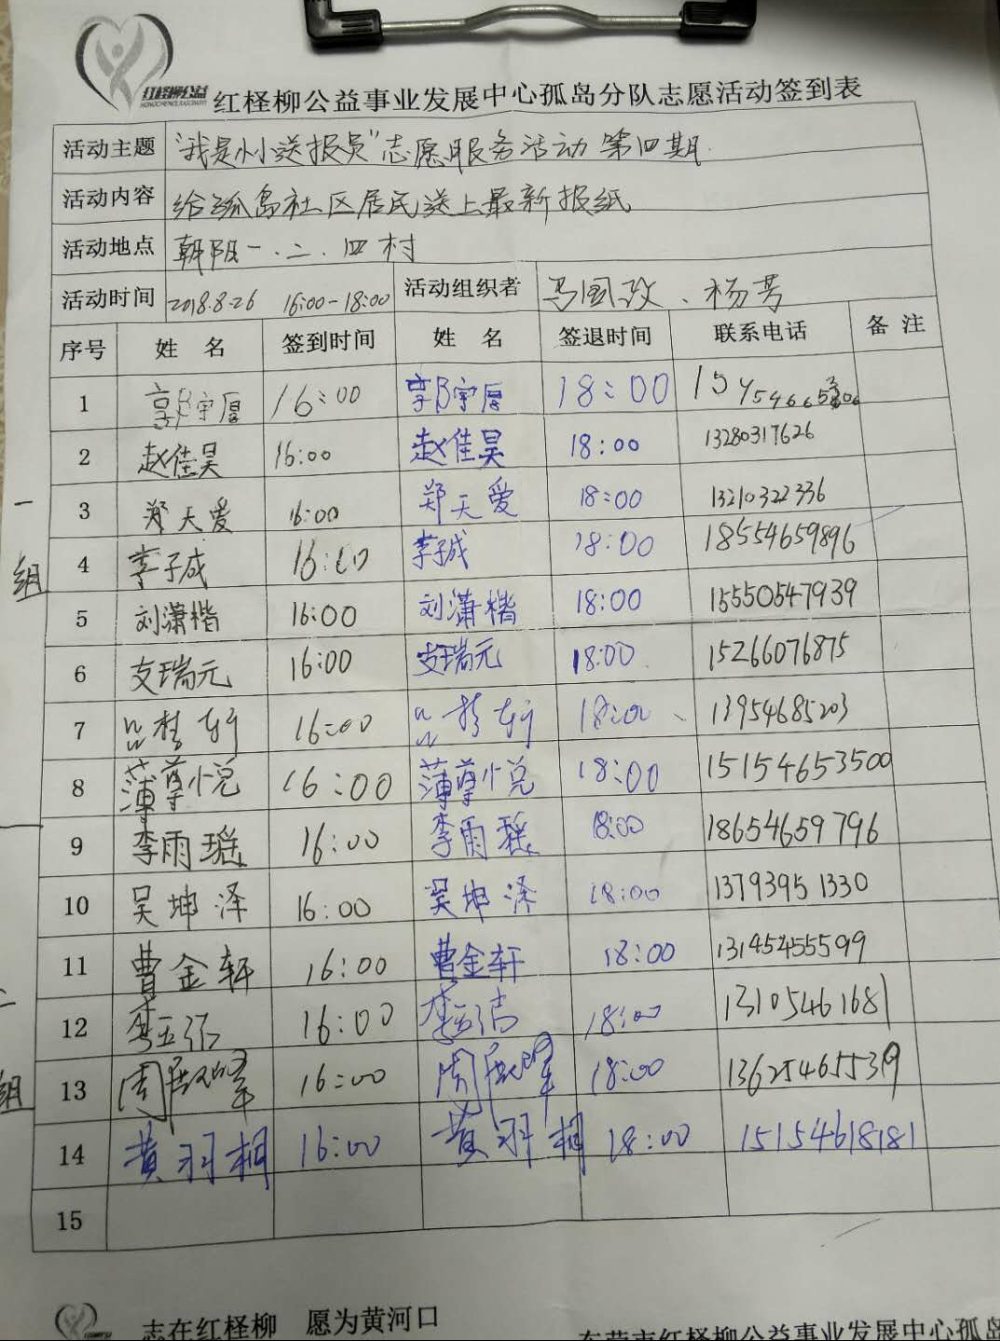 红柽柳公益
红柽柳公益事业发展中心孤岛分队志愿活动签到表
活动主题 "我是小小送报员"志愿服务活动第四期
活动内容 给孤岛社区居民送上最新报纸
活动地点 朝阳一.二.四村
活动时间 2018.8.26 16:00-18:00 活动组织者 马国政、杨芳
序号 姓 名 签到时间 姓 名 签退时间 联系电话 备 注
1 郭宇厚 16:00 郭宇厚 18:00
2 赵佳昊 16:00 赵佳昊 18:00 13280317626
3 郑天爱 16:00 郑天爱 18:00 13210322336
4 李子成 16:00 李子成 18:00 18554659896
5 刘潇楷 16:00 刘潇楷 18:00 15550547939
6 支瑞元 16:00 支瑞元 18:00 15266076875
7 16:00 18:00 13954685203
8 薄尊悦 16:00 薄尊悦 18:00 15154653500
9 李雨瑶 16:00 李雨瑶 18:00 18654659796
10 吴坤泽 16:00 吴坤泽 18:00 13793951330
11 曹金轩 16:00 曹金轩 18:00 13145455599
12 16:00 18:00 13105461681
13 16:00 18:00 13625465539
14 黄羽桐 16:00 黄羽桐 18:00 15154618181
15
一
组
二
组
志在红柽柳 愿为黄河口
东营市红柽柳公益事业发展中心孤岛